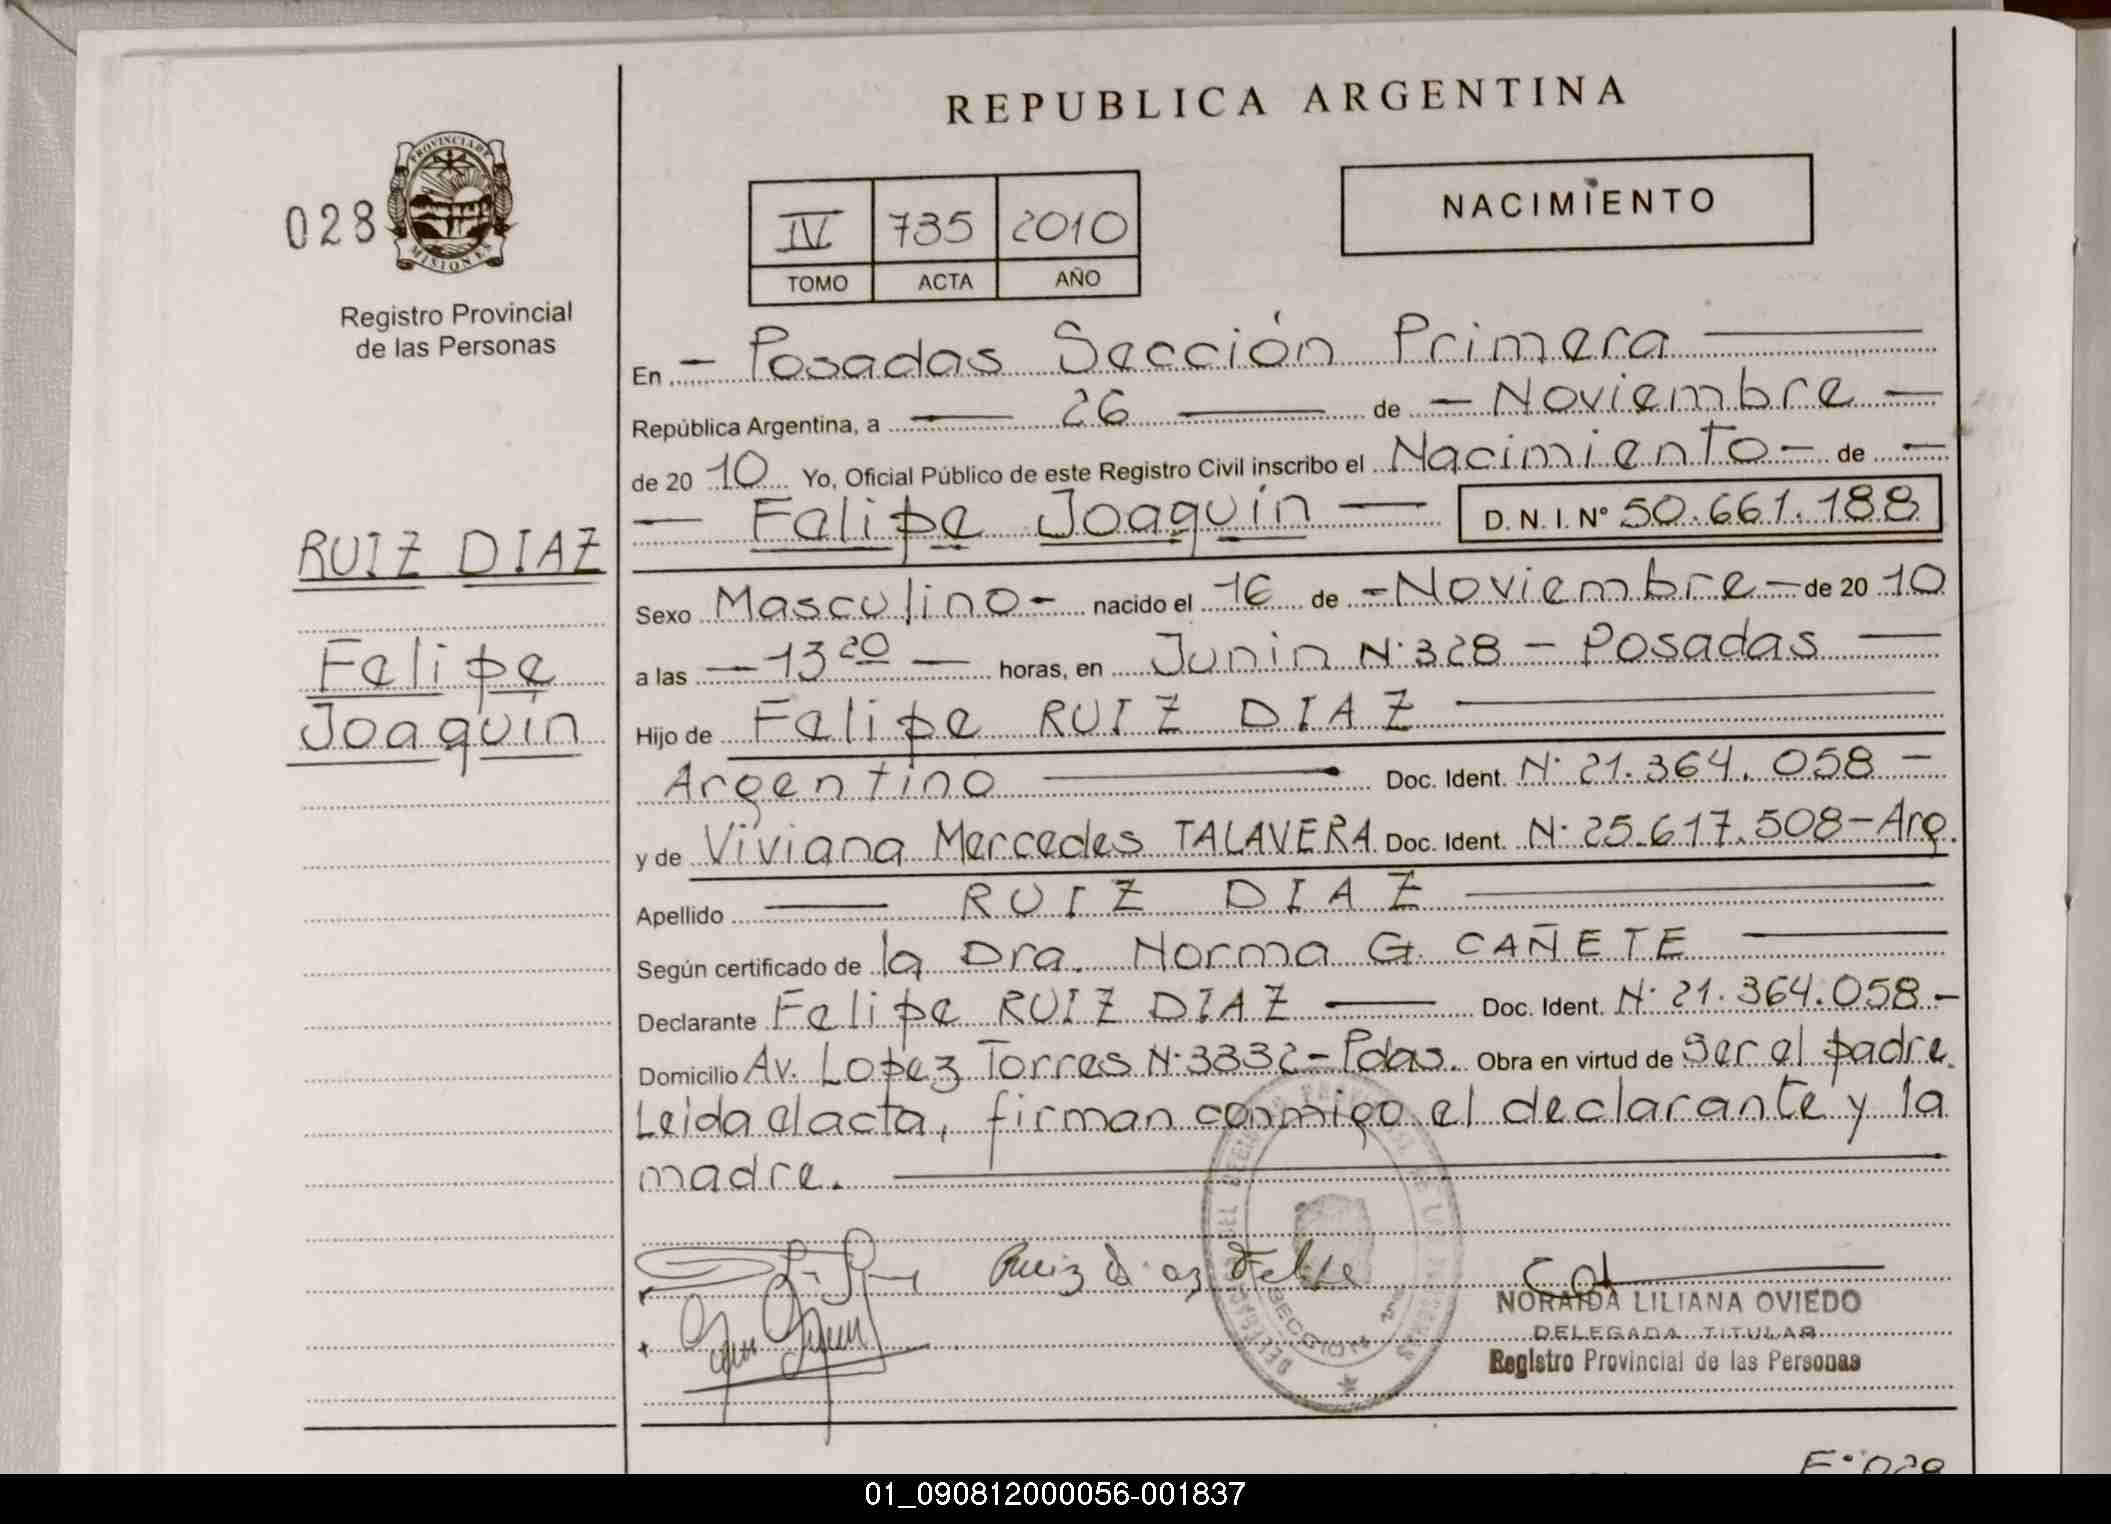 REPUBLICA ARGENTINA
028
PROVINCIA DE
MISIONES
Registro Provincial
de las Personas
IV 735 2010
TOMO ACTA AÑO
NACIMIENTO
En - Posadas Sección Primera
República Argentina, a - 26 - de - Noviembre -
de 20 10 Yo, Oficial Público de este Registro Civil inscribo el Nacimiento - de -
- Felipe Joaquín - D.N.I. N° 50.661.188
RUIZ DIAZ
Felipe
Joaquín
Sexo Masculino - nacido el 16 de - Noviembre - de 20 10
a las - 13 20 - horas, en Junin N° 328 - Posadas
Hijo de Felipe RUIZ DIAZ
Argentino Doc. Ident. N° 21.364.058 -
y de Viviana Mercedes TALAVERA Doc. Ident. N° 25.617.508 - Arg.
Apellido - RUIZ DIAZ
Según certificado de la Dra. Norma G. CAÑETE
Declarante Felipe RUIZ DIAZ - Doc. Ident. N° 21.364.058 -
Domicilio Av. Lopez Torres N° 3332 - Pdas. Obra en virtud de ser el padre.
Leida el acta, firman conmigo el declarante y la
madre.
Ruiz Diaz Felipe
SECCION
NORAIDA LILIANA OVIEDO
DELEGADA TITULAR
Registro Provincial de las Personas
01_090812000056-001837